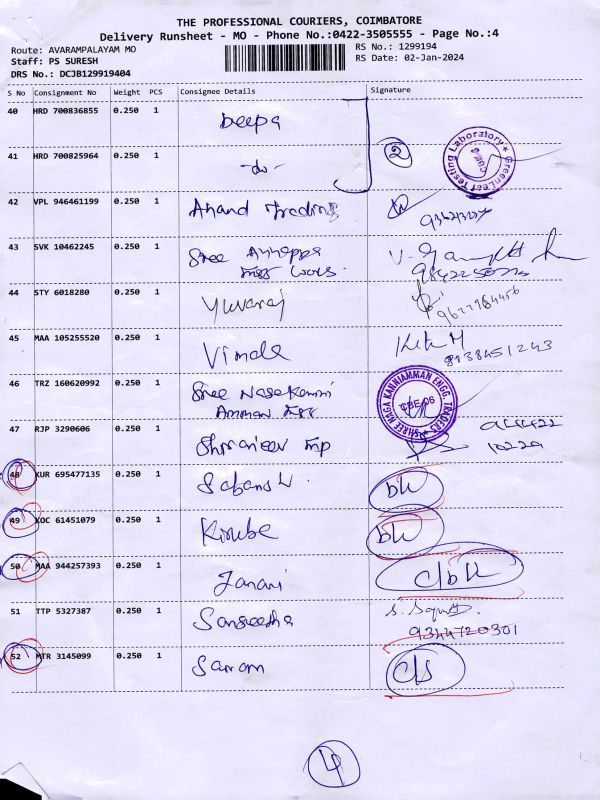 THE PROFESSIONAL COURIERS, COIMBATORE
Delivery Runsheet - MO - Phone No.:0422-3505555 - Page No.:4
Route: AVARAMPALAYAM MO
RS No.: 1299194
Staff: PS SURESH
RS Date: 02-Jan-2024
DRS No.: DCJB129919404
S No Consignment No Weight PCS Consignee Details Signature
40 HRD 700836855 0.250 1 Deepa
41 HRD 700825964 0.250 1 -do- 2
GreenLeaf Testing Laboratory
42 VPL 946461199 0.250 1 Anand Trading
43 SVK 10462245 0.250 1 Sree
44 STY 6018280 0.250 1 Yuvaraj
9627984456
45 MAA 105255520 0.250 1 Vimala
8938451243
46 TRZ 160620992 0.250 1 Sree
Amman
SHREE NAGA KANNIAMMAN ENGG. TRADERS
CBE-06
47 RJP 3290606 0.250 1
10229
48 KUR 695477135 0.250 1
49 KOC 61451079 0.250 1 Kirube
50 MAA 944257393 0.250 1 Janani
51 TTP 5327387 0.250 1
9344720301
52 MTR 3145099 0.250 1 c/s
4